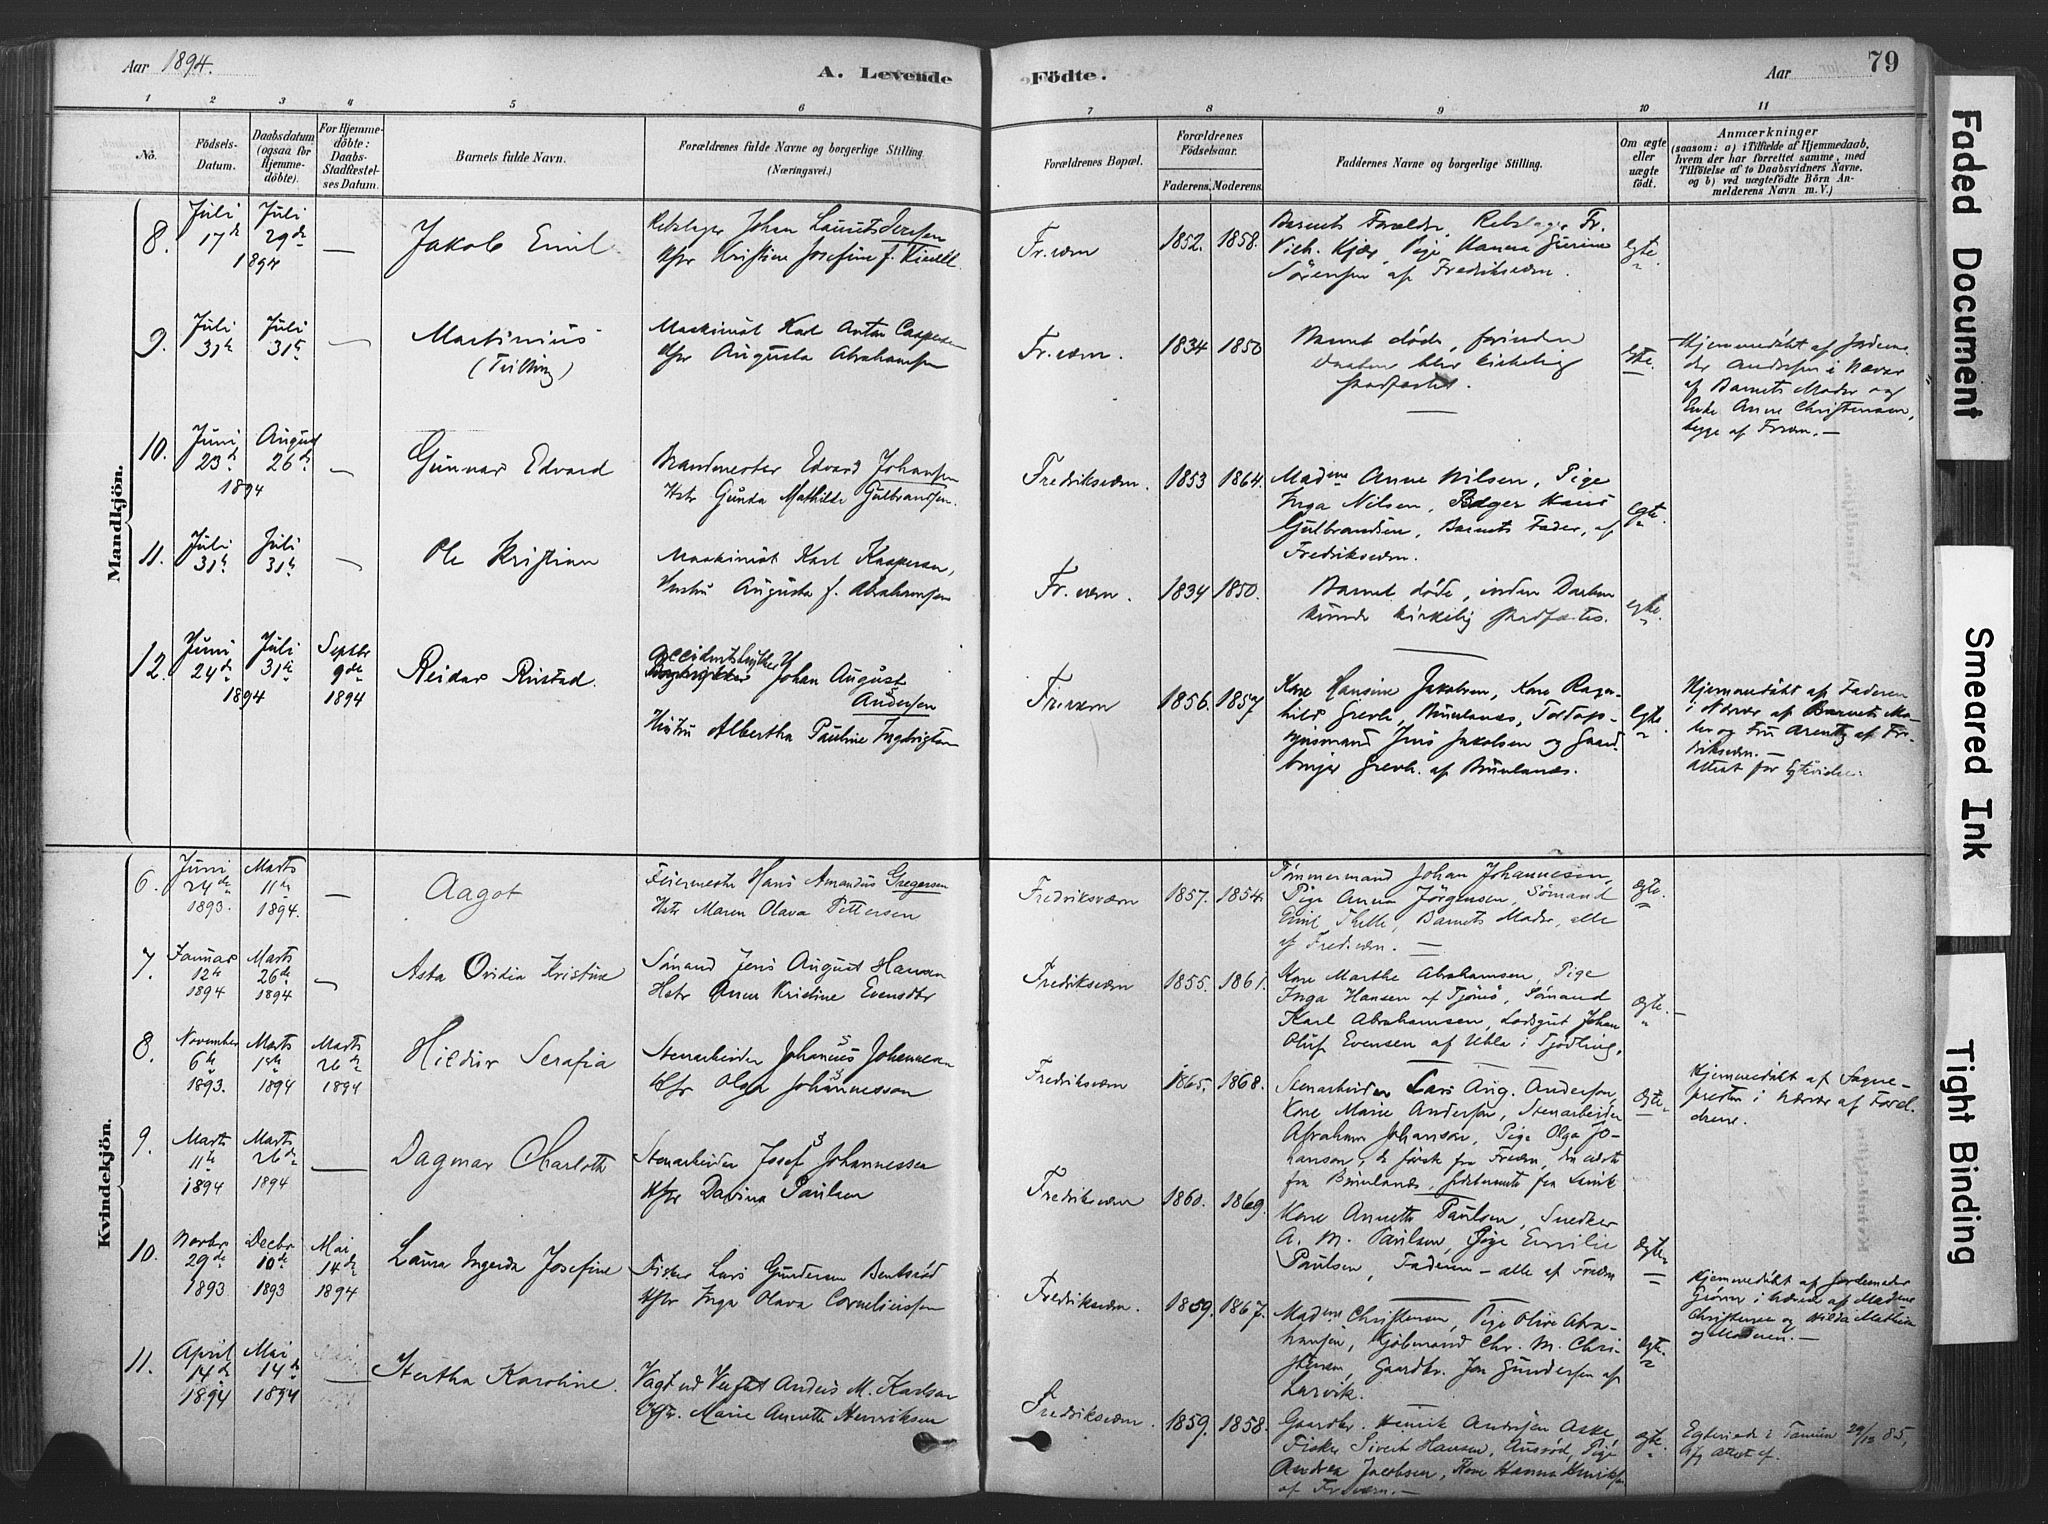 Aar 1894.
A. Levende
Fødte.
Aar
79
1 2 3 4 5 6 7 8 9 10 11
No.
Fødsels-
Datum.
Daabsdatum
(ogsaa for
Hjemme-
døbte).
For Hjemme-
døbte:
Daabs-
Stadfæstel-
ses Datum.
Barnets fulde Navn.
Forældrenes fulde Navne og borgerlige Stilling
(Næringsvei.)
Forældrenes Bopæl.
Forældrenes
Fødselsaar.
Faderens. Moderens.
Faddernes Navne og borgerlige Stilling.
Om ægte
eller
uægte
født.
Anmærkninger
(saasom: a) i Tilfælde af Hjemmedaab,
hvem der har forrettet samme, med
Tilføielse af to Daabsvidners Navne,
og b) ved uægtefødte Børn An-
melderens Navn m. V.)
Mandkjön.
8. Juli 17de 1894 Juli 29de — Jakob Emil
Rebslager Johan Laurits
Hstr Kristine Josefine f.
Fr.værn 1852. 1858.
Barnets Forældre, Rebslager Fr.
Vilh. Kjær, Pige
Sörensen af Fredriksværn.
Egte.
9. Juli 31te Juli 31te — Martinius
(Trilling)
Maskinist Karl Anton Caspersen
Hstr Augusta Abrahamsen
Fr.værn. 1834 1850
Barnet døde, forinden
Daaben blev kirkelig
stadfæstet.
Egte.
Hjemmedøbt af Jordemo-
der Andersen i Nærvær
af Barnets Moder og
Enke Anne Christensen,
begge af Frværn.—
10. Juni 23de 1894 August 26de — Gunnar Edvard
Brandmester Edvard Johansen
Hstr Gunda Mathilde Gulbrandsen.
Fredriksværn 1853 1864.
Madme Anne Nilsen, Pige
Inga Nilsen, Bager Hans
Gulbrandsen, Barnets Fader, af
Fredriksværn.
Egte.
11. Juli 31te Juli 31te — Ole Kristian
Maskinist Karl Kaspersen,
Hustru Augusta f. Abrahamsen
Fr.værn. 1834 1850.
Barnet døde, inden Daaben
kunde kirkelig stadfæstes.
egte.
12. Juni 24de 1894 Juli 31te Septbr 9de 1894 Reidar Rustad.
Accidentstrykker
Johan August
Andersen
Hustru Albertha Pauline
Frværn 1856. 1857
Kone Hansine Jakobsen, Kone Ragn-
hild Grevle, Brunlanæs,
Jens Jakobsen og Gaard-
bruger Grevle af Brunlanæs.
Egte.
Hjemmedøbt af Faderen
i Nærvær af Barnets Mo-
der og Fru Arentz af Fre-
driksværn.—
Attest for Egtevielse.
Kvindekjön.
6. Juni 24de 1893. Marts 11te 1894. — Aagot
Feiermester Hans Amandus Gregersen
Hstr Maren Olava Pettersen
Fredriksværn 1857. 1854.
Tømmermand Johan Johannesen,
Pige Anna Jörgensen, Sömand
Emil Thelle, Barnets Moder, alle
af Fred.værn. —
Ægte.
7. Januar 12te 1894 Marts 26de 1894 — Asta Ovidia Kristine
Sömand Jens August Hansen
Hstr Anne Kristine Evensdtr
Fredriksværn 1855. 1861.
Kone Marthe Abrahamsen, Pige
Inga Hansen af Tjömö, Sömand
Karl Abrahamsen, Lodsgut Johan
Oluf Evensen af Ula i Tjødling.
Ægte.—
8. November 6te 1893. Marts 1894 Marts 26de 1894 Hildur Serafia
Stenarbeider Johannes Johannesson
Hstr Olga Johannesson
Fredriksværn 1865. 1868.
Stenarbeider Lars Aug. Anderson,
Kone Marie Anderson, Stenarbeider
Abraham Johanson, Pige Olga Jo-
hanson, de første fra Frværn, den
fra Brunlanæs, sidstnævnte fra
Ægte.
Hjemmedøbt af Sogne-
presten i Nærvær af Foræl-
drene.
9. Marts 11te 1894 Marts 26de 1894 — Dagmar Charlotte
Stenarbeider Josef Johannessen
Hstr Davina Paulsen
Fredriksværn 1860. 1869.
Kone Annette Paulsen, Snedker
A. M. Paulsen, Pige Emilie
Paulsen, Faderen — alle af Frværn
Ægte.
10. Novbr 29de 1893 Decbr 10de 1893 Mai 14de 1894 Laura Ingerda Josefine
Fisker Lars Gundersen
Hstr Inga Olava Corneliussen
Fredriksværn. 1859. 1867.
Madme Christensen, Pige Olive Abra-
hamsen, Kjøbmand Chr. M. Chri-
stensen, Gaardbr. Jon Gundersen af
Larvik.
Ægte.
Hjemmedøbt af Jordemoder
i Nærvær af Madme
Christensen og Hilda
og Moderen.—
11. April 14de 1894 Mai 14de 1894 — Hertha Karoline.
Vagt ved Verftet Anders M. Karlsen
Hstr. Marie Annette Henriksen
Fredriksværn. 1859. 1858.
Gaardbr. Henrik Andersen
Fisker Sivert Hansen, Pige
Andrea Jacobsen, Kone Hanna Henriksen
af Frværn.—
Ægte.
Egteviede i 29/12 85,
Attest af.
Faded Document
Smeared Ink
Tight Binding